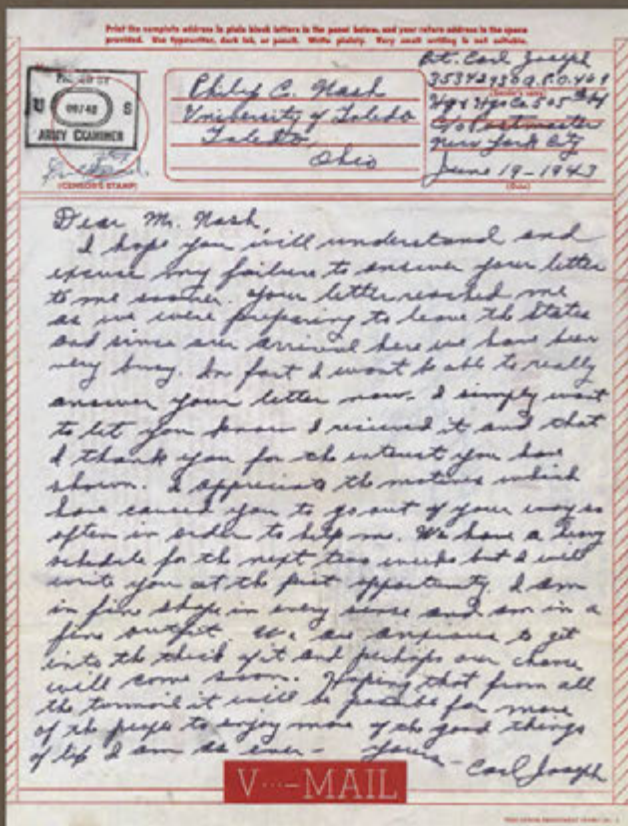 Print the complete address in plain block letters in the panel below, and your return address in the space
provided. Use typewriter, dark ink, or pencil. Write plainly. Very small writing is not suitable.
PASSED BY
U S
09742
ARMY EXAMINER
(CENSOR'S STAMP)
Philip C. Nash
University of Toledo
Toledo
Ohio
Pvt. Carl Joseph
35342930 A.P.O. 469
(Sender's name)
Hq & Hq Co. 505th
c/o Postmaster
New York City
June 19-1943
(Date)
Dear Mr. Nash,
I hope you will understand and
excuse my failure to answer your letter
to me sooner. Your letter reached me
as we were preparing to leave the States
and since our arrival here we have been
very busy. In fact I wont be able to really
answer your letter now. I simply want
to let you know I recieved it and that
I thank you for the interest you have
shown. I appreciate the motives which
have caused you to go out of your way so
often in order to help me. We have a busy
schedule for the next two weeks but I will
write you at the first opportunity. I am
in fine shape in every sense and am in a
fine outfit. We are anxious to get
into the thick of it and perhaps our chance
will come soon. Hoping that from all
the turmoil it will be possible for more
of the people to enjoy more of the good things
of life I am as ever - Yours - Carl Joseph
V···-MAIL